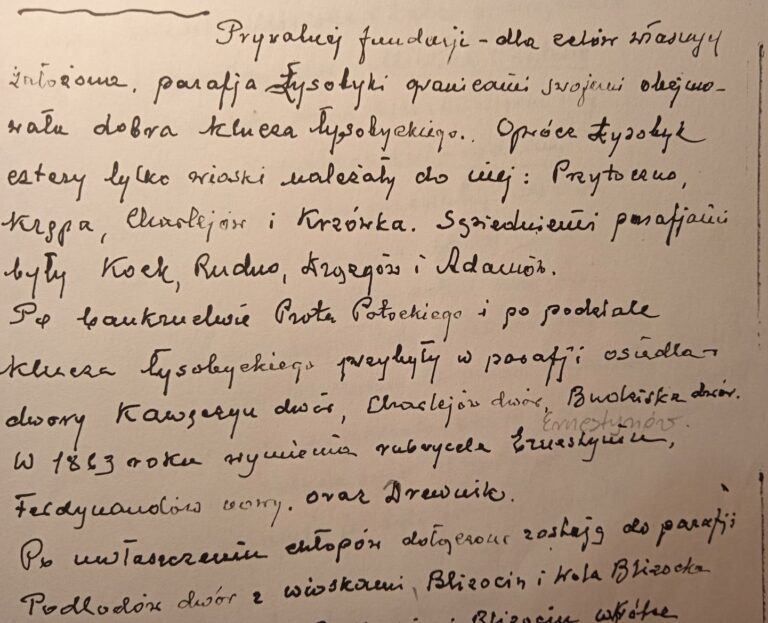 Prywatnej fundacji - dla celów własnych
założona, parafja Łysobyki granicami swojemi obejmo-
wała dobra klucza łysobyckiego. Oprócz Łysobyk
cztery tylko wioski należały do niej: Przytoczno,
Krępa, Charlejów i Krzówka. Sąsiedniemi parafjami
były Kock, Rudno, i Adamów.
Po bankructwie Prota Potockiego i po podziale
klucza łysobyckiego przybyły w parafji osiedla-
dwory Kawęczyn dwór, Charlejów dwór, Budziska dwór.
Ernestynów.
W 1863 roku wymienia rubrycela Ernestynów,
Ferdynandów nowy. oraz Drewnik.
Po uwłaszczeniu chłopów dołączone zostają do parafji
Podlodów dwór z wioskami, Blizocin i Wola Blizocka
i Blizocin wkrótce